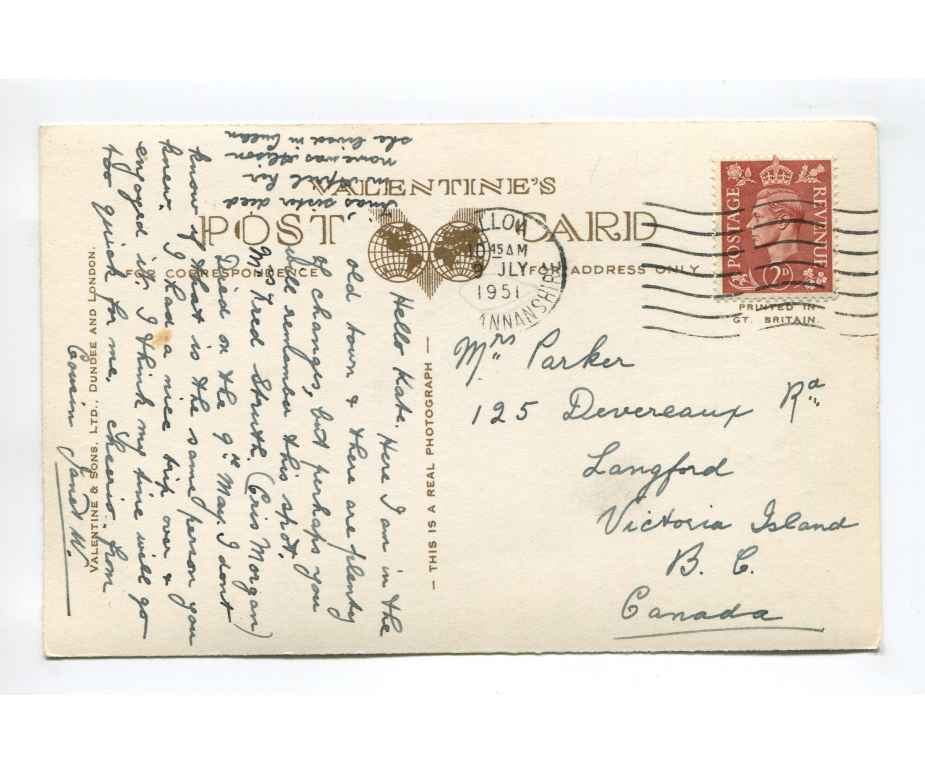 VALENTINE'S
POST CARD
FOR CORRESPONDENCE
FOR ADDRESS ONLY
LLOA
45 AM
9 JLY
1951
ANNANSHIRE
POSTAGE
REVENUE
2D
PRINTED IN
GT. BRITAIN.
Mrs Parker
125 Devereaux Rd
Langford
Victoria Island
B. C.
Canada
— THIS IS A REAL PHOTOGRAPH —
Hello Kate. Here I am in the
old town & there are plenty
of changes, but perhaps you
will remember this spot.
Mrs Fred Struth, (Cris Morgan)
Died on the 9th May. I dont
know if that is the same person you
knew. I had a nice trip over &
enjoyed it. I think my time will go
too quick for me, Cheerio. from
Cousin Janet W.
sister died
in April her
name was Alison
she lived in
VALENTINE & SONS, LTD., DUNDEE AND LONDON.